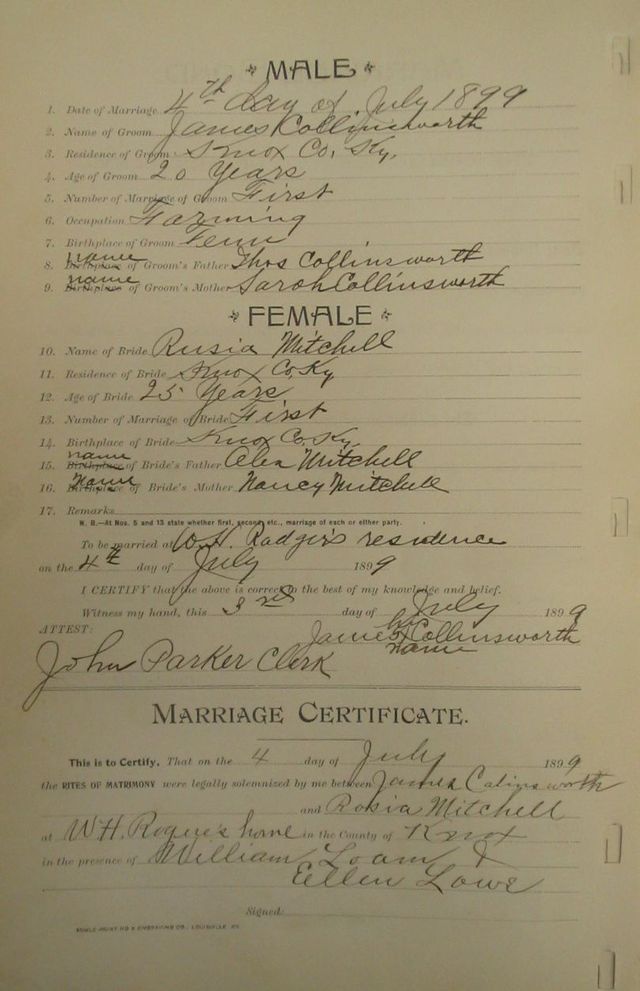 MALE
1. Date of Marriage 4th day of July 1899
2. Name of Groom James Collinsworth
3. Residence of Groom Knox Co, Ky,
4. Age of Groom 20 Years
5. Number of Marriage of Groom First
6. Occupation Farming
7. Birthplace of Groom Tenn
8. Birthplace name of Groom's Father Thos Collinsworth
9. Birthplace name of Groom's Mother Sarah Collinsworth
FEMALE
10. Name of Bride Rusia Mitchell
11. Residence of Bride Knox Co, Ky
12. Age of Bride 25 Years
13. Number of Marriage of Bride First
14. Birthplace of Bride Knox Co. Ky.
15. Birthplace name of Bride's Father Alex Mitchell
16. Birthplace Name of Bride's Mother Nancy Mitchell
17. Remarks
N. B.—At Nos. 5 and 13 state whether first, second, etc., marriage of each or either party.
To be married at W.H. residence
on the 4th day of July 1899
I CERTIFY that the above is correct to the best of my knowledge and belief.
Witness my hand, this 3rd day of July 1899
ATTEST: James Collinsworth
name
John Parker Clerk
MARRIAGE CERTIFICATE.
This is to Certify, That on the 4 day of July 1899
the RITES OF MATRIMONY were legally solemnized by me between James Colinsworth
and Rosia Mitchell
at W.H. home in the County of Knox
in the presence of William &
Ellen Lowe
Signed:
CO., LOUISVILLE, KY.